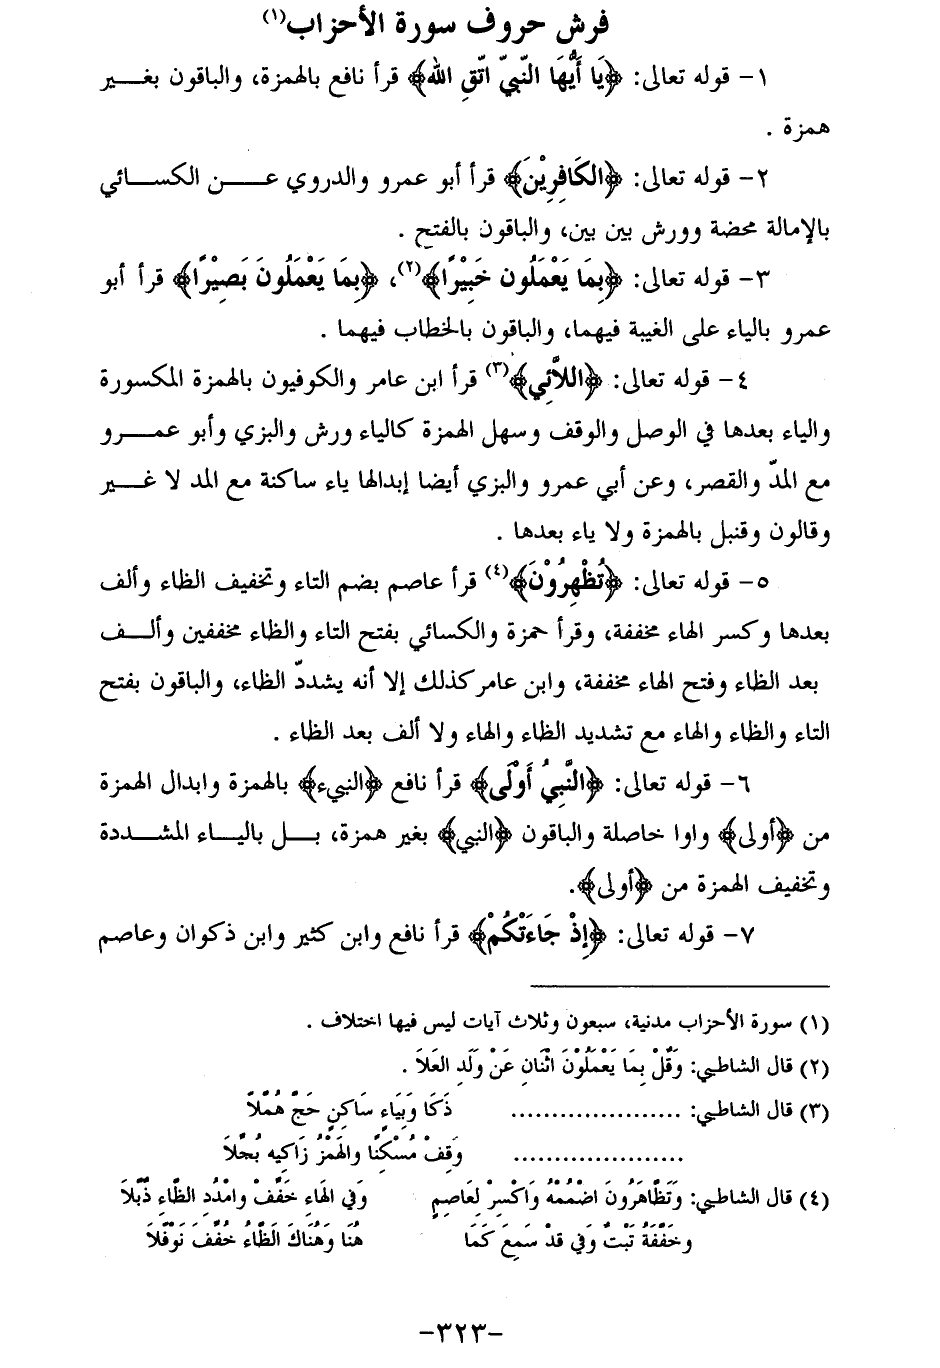 فرش حروف سورة الأحزاب(١)
١- قوله تعالى: ﴿يَا أَيُّهَا النّبيّ اتّقِ الله﴾ قرأ نافع بالهمزة، والباقون بغـــير
همزة .
٢- قوله تعالى: ﴿الكَافِرِيْنَ﴾ قرأ أبو عمرو والدروي عـــن الكســـائي
بالإمالة محضة وورش بين بين، والباقون بالفتح .
٣- قوله تعالى: ﴿بِمَا يَعْمَلُون خَبِيْرًا﴾(٢)، ﴿بِمَا يَعْمَلُونَ بَصِيْرًا﴾ قرأ أبو
عمرو بالياء على الغيبة فيهما، والباقون بالخطاب فيهما .
٤- قوله تعالى: ﴿اللاَّئِي﴾(٣) قرأ ابن عامر والكوفيون بالهمزة المكسورة
والياء بعدها في الوصل والوقف وسهل الهمزة كالياء ورش والبزي وأبو عمـــرو
مع المدّ والقصر، وعن أبي عمرو والبزي أيضا إبدالها ياء ساكنة مع المد لا غـــير
وقالون وقنبل بالهمزة ولا ياء بعدها .
٥- قوله تعالى: ﴿تُظْهِرُوْنَ﴾(٤) قرأ عاصم بضم التاء وتخفيف الظاء وألف
بعدها وكسر الهاء مخففة، وقرأ حمزة والكسائي بفتح التاء والظاء مخففين وألـــف
بعد الظاء وفتح الهاء مخففة، وابن عامر كذلك إلا أنه يشددّ الظاء، والباقون بفتح
التاء والظاء والهاء مع تشديد الظاء والهاء ولا ألف بعد الظاء .
٦- قوله تعالى: ﴿النَّبِيُ أَوْلَى﴾ قرأ نافع ﴿النبيء﴾ بالهمزة وابدال الهمزة
من ﴿أولى﴾ واوا خاصلة والباقون ﴿النبي﴾ بغير همزة، بـــل باليـــاء المشـــددة
وتخفيف الهمزة من ﴿أولى﴾.
٧- قوله تعالى: ﴿إِذْ جَاءَتْكُمْ﴾ قرأ نافع وابن كثير وابن ذكوان وعاصم
(١) سورة الأحزاب مدنية، سبعون وثلاث آيات ليس فيها اختلاف .
(٢) قال الشاطبي: وَقُلْ بِمَا يَعْمَلُوْنَ اثْنَانِ عَنْ وَلَدِ العَلاَ .
(٣) قال الشاطبي: ..................... ذَكَا وَبِيَاءٍ سَاكِنٍ حَجّ هُمّلاَ
..................... وَقِفْ مُسْكِنًا والهَمْزُ زَاكِيه بُجّلاَ
(٤) قال الشاطبي: وَتَظَّاهَرُونَ اضْمُمْهُ وَاكْسِرْ لِعَاصِمٍ وَفي الهَاءِ خَفّفْ وامْدُدِ الظّاءِ ذُبّلاَ
وخَفّفَهُ ثَبْتٌ وَفي قدْ سَمِعَ كَمَا هُنَا وَهُنَاكَ الظّاءُ خُفّفَ نَوْفَلاَ
-٣٢٣-